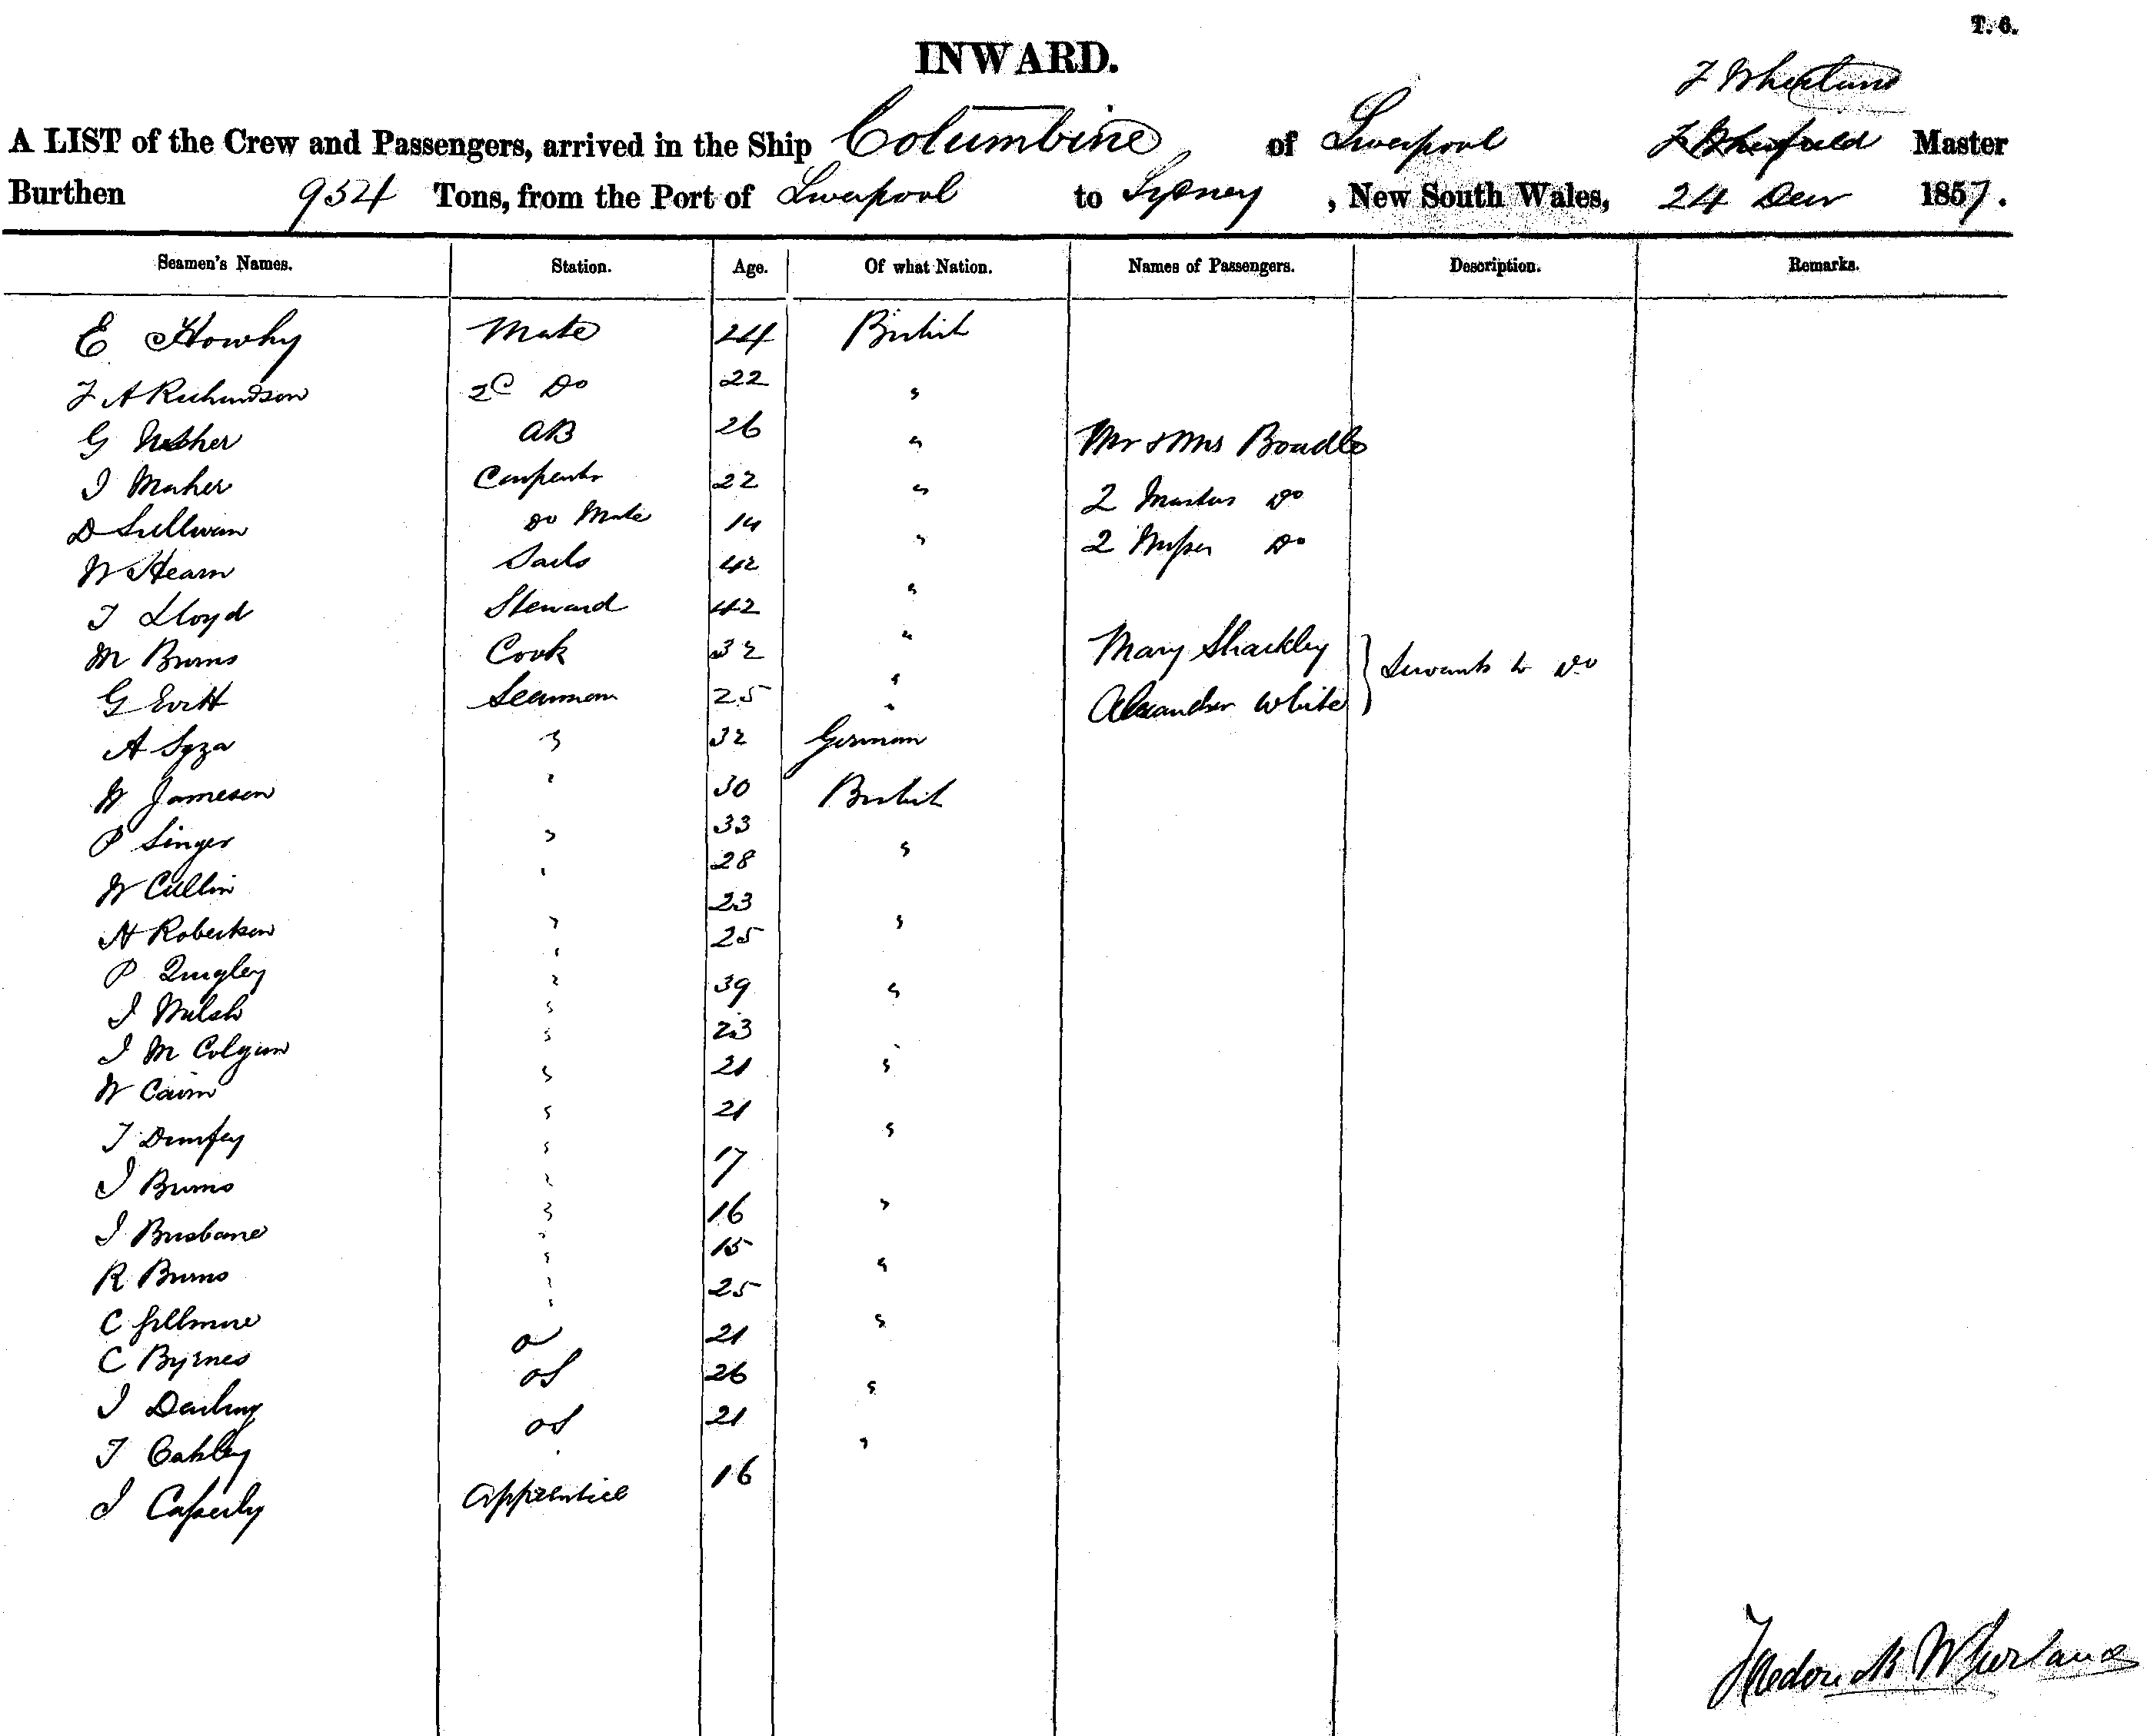 T. 6.
INWARD.
F Wherland
A LIST of the Crew and Passengers, arrived in the Ship Columbine of Liverpool Master
Burthen 954 Tons, from the Port of Liverpool to Sydney, New South Wales, 24 Decr 1857.
Seamen's Names. Station. Age. Of what Nation. Names of Passengers. Description. Remarks.
E Howhy Mate 24 British
J A Richardson 2d Do 22 "
G AB 26 " Mr & Mrs Boadle
J Maher Carpenter 22 " 2 Masters Do
D Sullivan Do Mate 14 " 2 Misses Do
W Hearn Sails 42 "
T Lloyd Steward 42 "
M Burns Cook 32 " Mary Shackley Servants to Do
G Evitt Seaman 25 " Alexander White
A Syza " 32 German
W Jameson " 30 British
P Singer " 33 "
W Cullin " 28
H Robertson " 23 "
P Quigley " 25
J Walsh " 39 "
J M Colgan " 23
W Cairn " 21 "
T Dunfey " 21 "
J Burns " 17
J Brisbane " 16 "
R Burns " 15 "
C Gillmore " 25 "
C Byrnes 21
J Darling OS 26 "
T Oakley OS 21 "
J Casserly Apprentice 16
Frederick Wherland